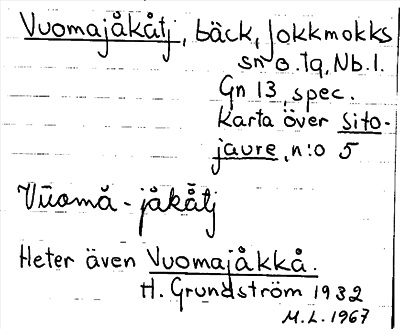 Vuomajåkåtj, bäck, Jokkmokks
sn o. tg, Nb. l.
Gn 13 spec.
Karta över Sito-
jaure, n:o 5
Vūomă - jåkåtj
Heter även Vuomajåkkå.
H. Grundström 1932
M.L. 1967